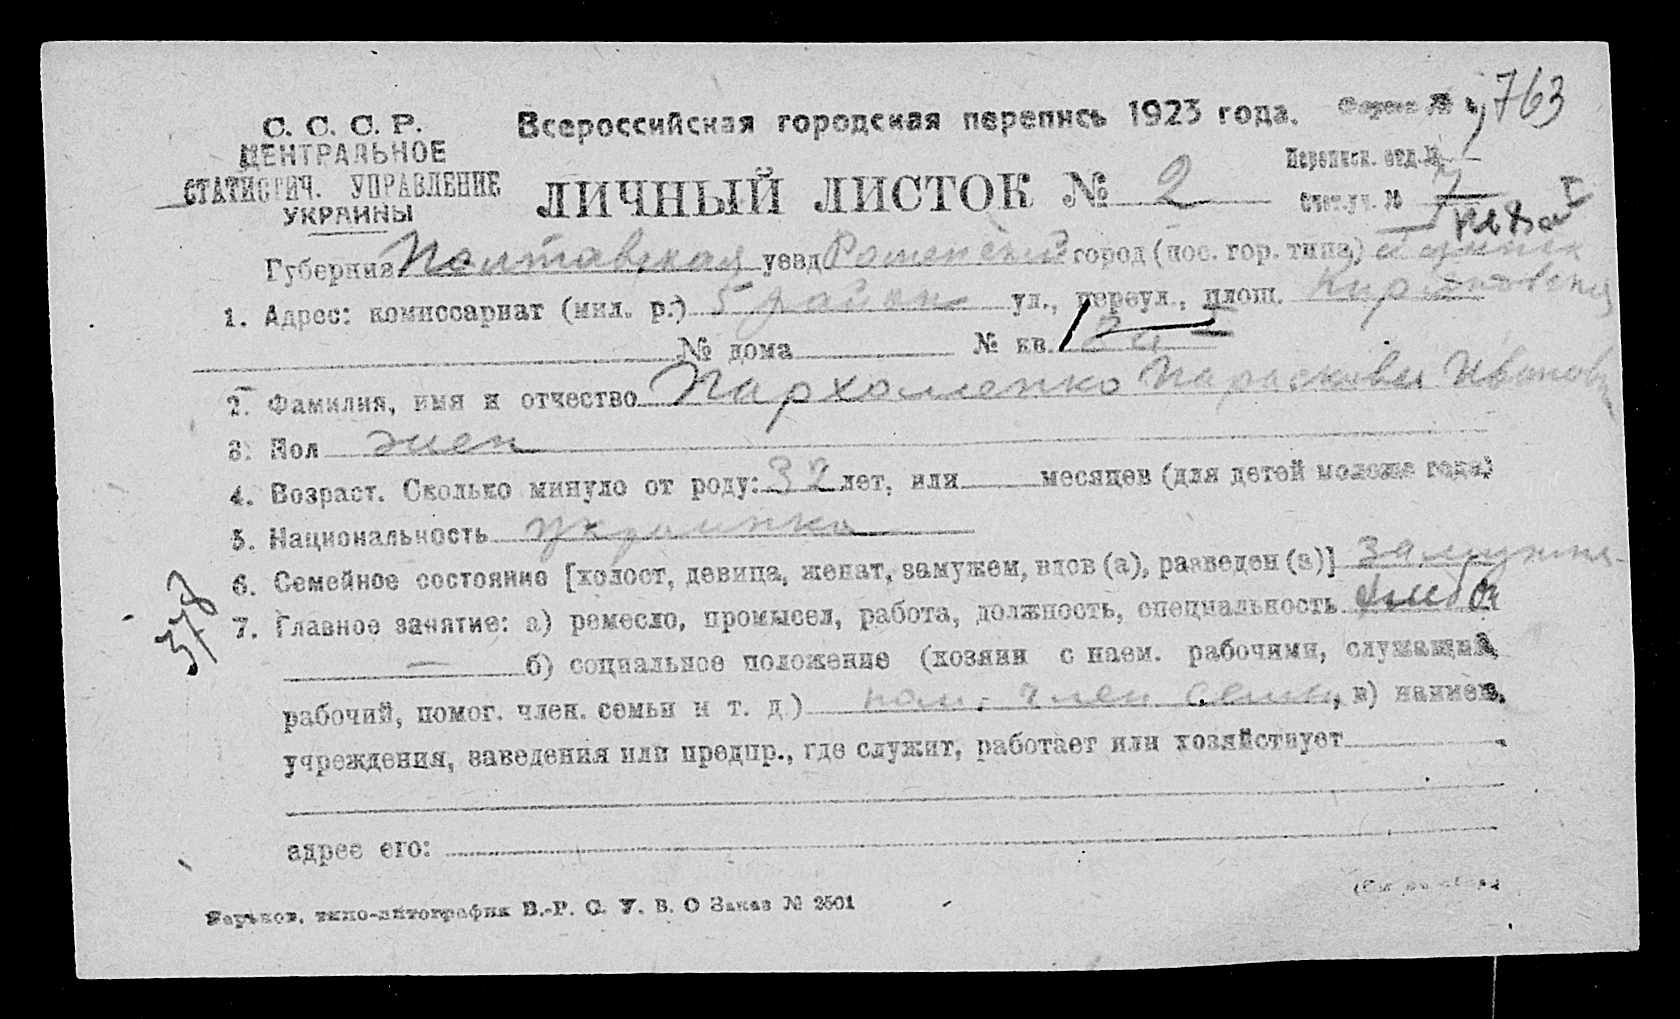 С. С. С. Р.
ЦЕНТРАЛЬНОЕ
СТАТИСТИЧ. УПРАВЛЕНИЕ
УКРАИНЫ
Всероссийская городская перепись 1923 года.
Форма № 763
Переписн. отд. №
ЛИЧНЫЙ ЛИСТОК № 2
Стат.-уч. № 7
Губерния Полтавская уезд Роменский город (пос. гор. типа)
1. Адрес: комиссариат (мил. р.) 5 район ул., переул., площ.
№ дома № кв.
2. Фамилия, имя и отчество Пархоменко Парасковья Ивановна
3. Пол жен
4. Возраст. Сколько минуло от роду: 32 лет, или месяцев (для детей моложе года)
5. Национальность украинка
6. Семейное состояние [холост, девица, женат, замужем, вдов (а), разведен (а)] замужня
7. Главное занятие: а) ремесло, промысел, работа, должность, специальность
378
— б) социальное положение (хозяин с наем. рабочими, служащий,
рабочий, помог. член. семьи и т. д.) пом. член семьи, в) наимен.
учреждения, заведения или предпр., где служит, работает или хозяйствует
адрес его:
Харьков, типо-литография В.-Р. С. У. В. О Заказ № 2501